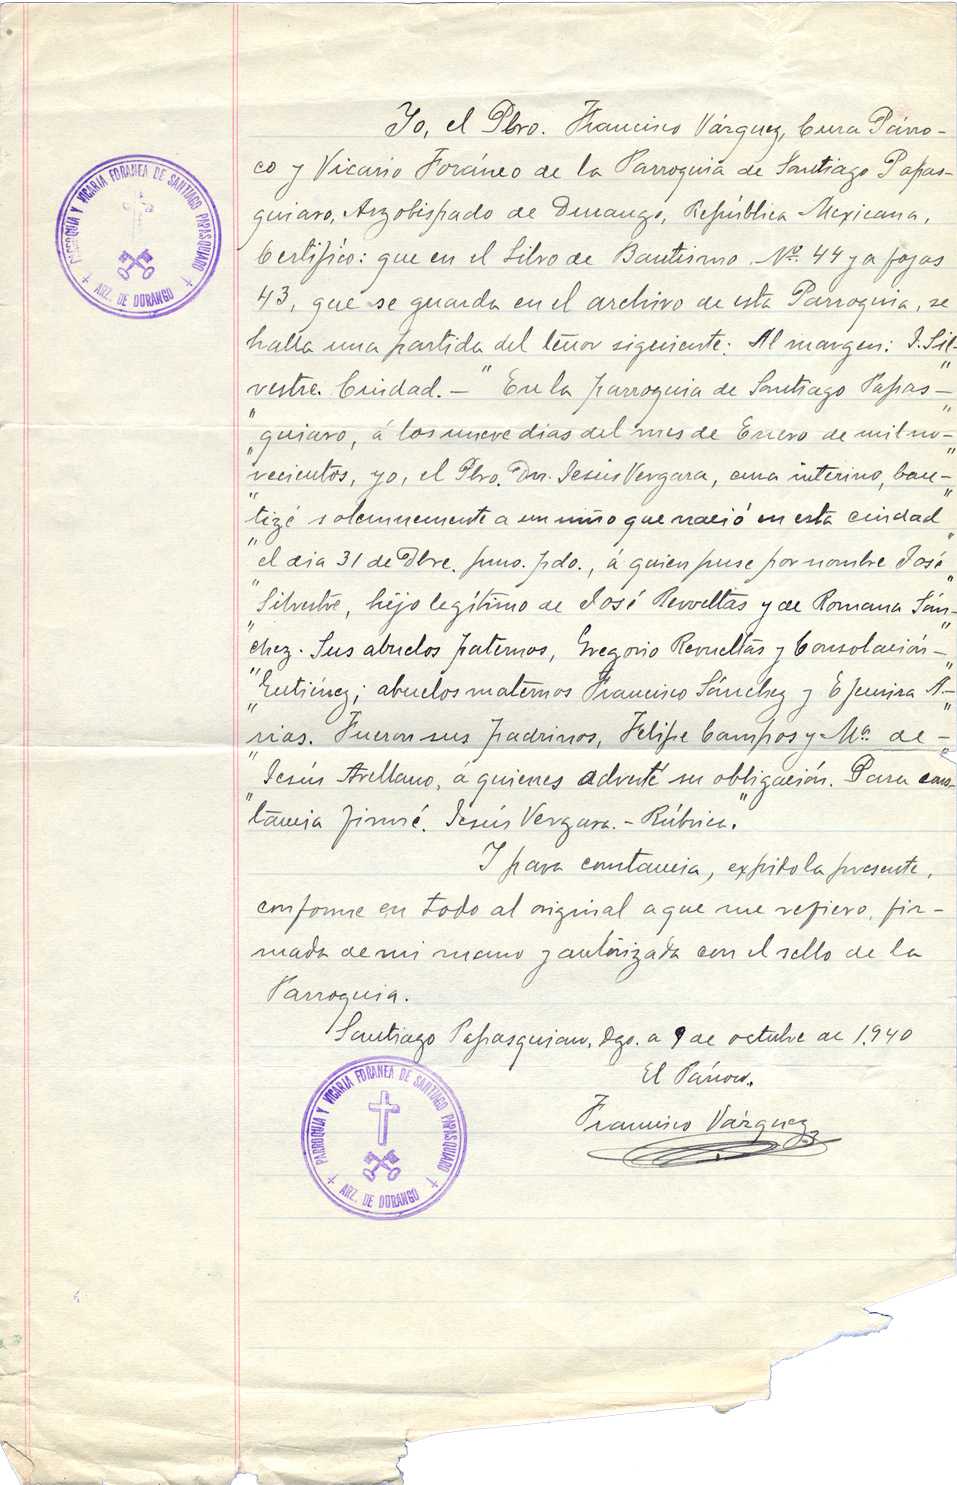 Yo, el Pbro. Francisco Vázquez, Cura Párro-
co y Vicario Foráneo de la Parroquia de Santiago Papas-
quiaro, Arzobispado de Durango, República Mexicana,
Certifico: que en el Libro de Bautismo Nº. 44 y a fojas
43, que se guarda en el archivo de esta Parroquia, se
halla una partida del tenor siguiente: Al margen: J. Sil-
vestre. Ciudad. — "En la parroquia de Santiago Papas- "
"quiaro, á los nueve dias del mes de Enero de mil no- "
"vecientos, yo, el Pbro. Dn. Jesús Vergara, cura interino, bau- "
"tizé solemnemente a un niño que nació en esta ciudad "
"el dia 31 de Dbre. pmo. pdo., á quien puse por nombre José "
"Silvestre, hijo legítimo de José Revueltas y de Romana Sán- "
"chez. Sus abuelos paternos, Gregorio Revueltas y Consolación- "
"Gutiérrez; abuelos maternos Francisco Sánchez y Epenira A- "
"rias. Fueron sus padrinos, Felipe Campos y Ma. de - "
"Jesús Arellano, á quienes adverté su obligación. Para cons-
"tancia firmé. Jesús Vergara. - Rúbrica."
I para constancia, expido la presente,
conforme en todo al original a que me refiero, fir-
mada de mi mano y autorizada con el sello de la
Parroquia.
Santiago Papasquiaro, Dgo. a 9 de octubre de 1,940
El Párroco.
Francisco Vázquez
PARROQUIA Y VICARIA FORANEA DE SANTIAGO PAPASQUIARO
ARZ. DE DURANGO
PARROQUIA Y VICARIA FORANEA DE SANTIAGO PAPASQUIARO
ARZ. DE DURANGO